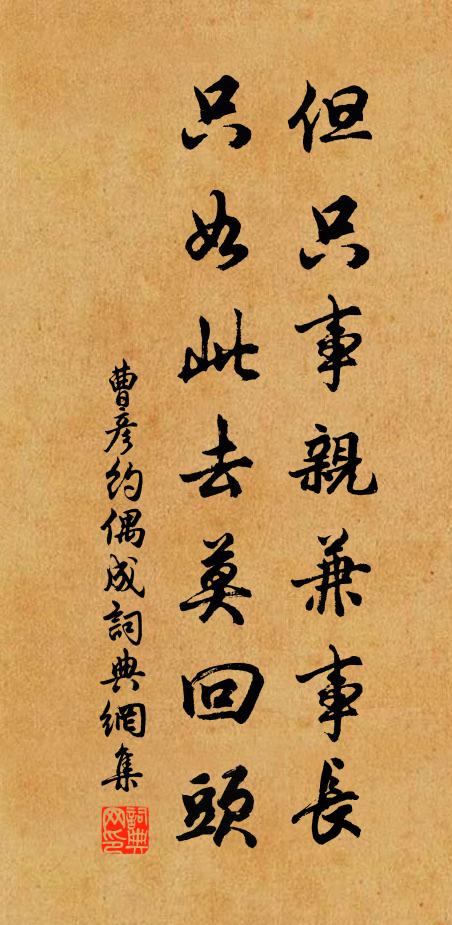 但只事親兼事長
只如此去莫回頭
曹彥約偶成詞典網集
詞典網印